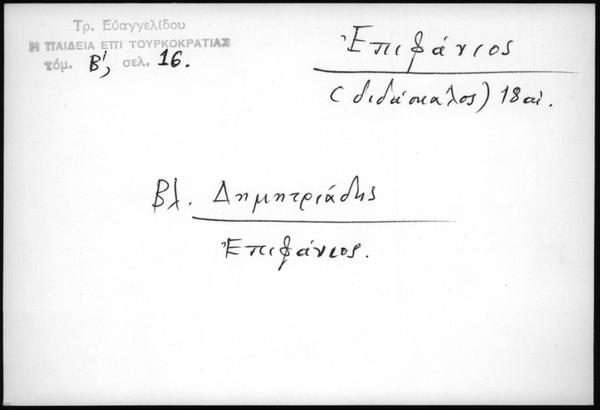 Τρ. Εὐαγγελίδου
Η ΠΑΙΔΕΙΑ ΕΠΙ ΤΟΥΡΚΟΚΡΑΤΙΑΣ
τόμ. Β', σελ. 16.
Ἐπιφάνιος
(διδάσκαλος) 18 αἰ.
Βλ. Δημητριάδης
Ἐπιφάνιος.